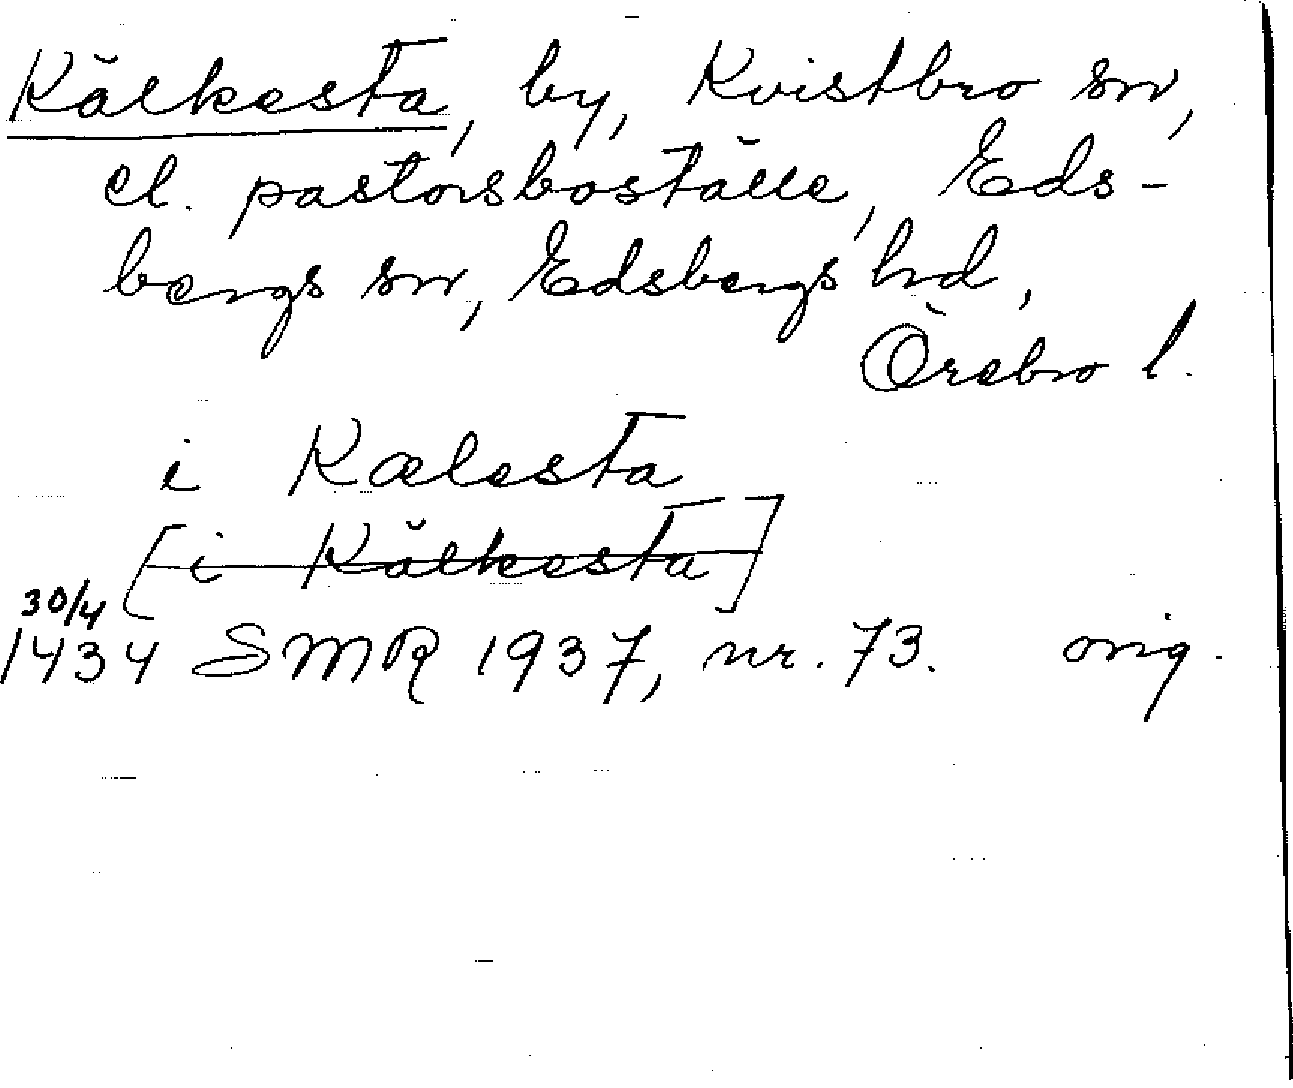 Kälkesta, by, Kvistbro sn,
el. pastorsboställe, Eds-
bergs sn, Edsbergs hd,
Örebro l.
i Kælesta
[i Kälkesta]
30/4
1434 SMR 1937, nr. 73. orig.